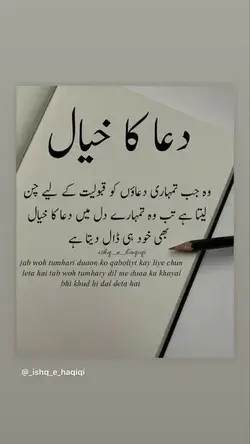 دعا کا خیال
وہ جب تمہاری دعاؤں کو قبولیت کے لیے چن
لیتا ہے تب وہ تمہارے دل میں دعا کا خیال
بھی خود ہی ڈال دیتا ہے
ishq_e_haqiqi
jab woh tumhari duaon ko qaboliyt kay liye chun
leta hai tab woh tumhary dil me duaa ka khayal
bhi khud hi dal deta hai
@_ishq_e_haqiqi